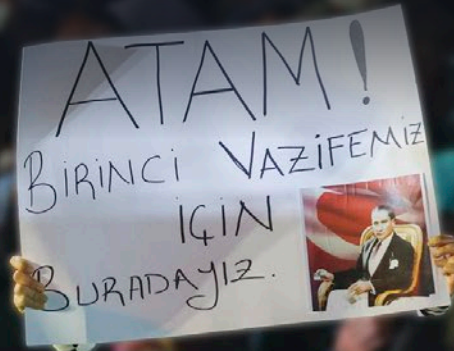 ATAM!
BİRİNCİ VAZİFEMİZ
İÇİN
BURADAYIZ.